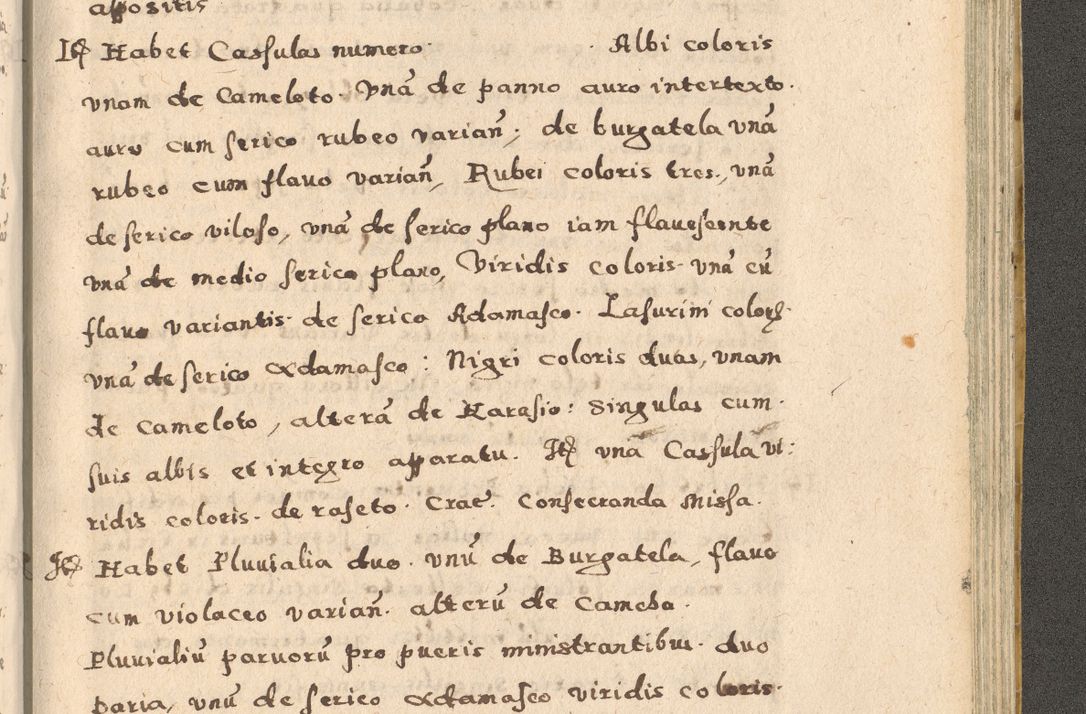 appositis
Itꝫ Habet Cassulas numero. Albi coloris
vnam de Cameloto. Vnã de panno auro intertexto.
auro cum serico rubeo varian̄; de burgatela vnã
rubeo cum flauo varian̄, Rubei coloris tres., vnã
de serico viloso, vnã de serico plano iam flauescente
vnã de medio serico plano, Viridis coloris. vnã cũ
flauo variantis. de serico Adamasco. Lasurini colorꝫ.
vnã de serico adamasco: Nigri coloris duas, vnam
de Cameloto, alterã de Harasio: Singulas cum.
suis albis et integro apparatu. Itꝫ vnã Cassula vi:
ridis coloris. de raseto. Crat. Consecranda Missa.
Itꝫ Habet Pluuialia duo. vnũ de Burgatela, flauo
cum violaceo varian̄. alterũ de Camcha.
Pluuialiũ paruorũ pro pueris ministrantibus. duo
paria, vnũ de serico adamasco viridis coloris.